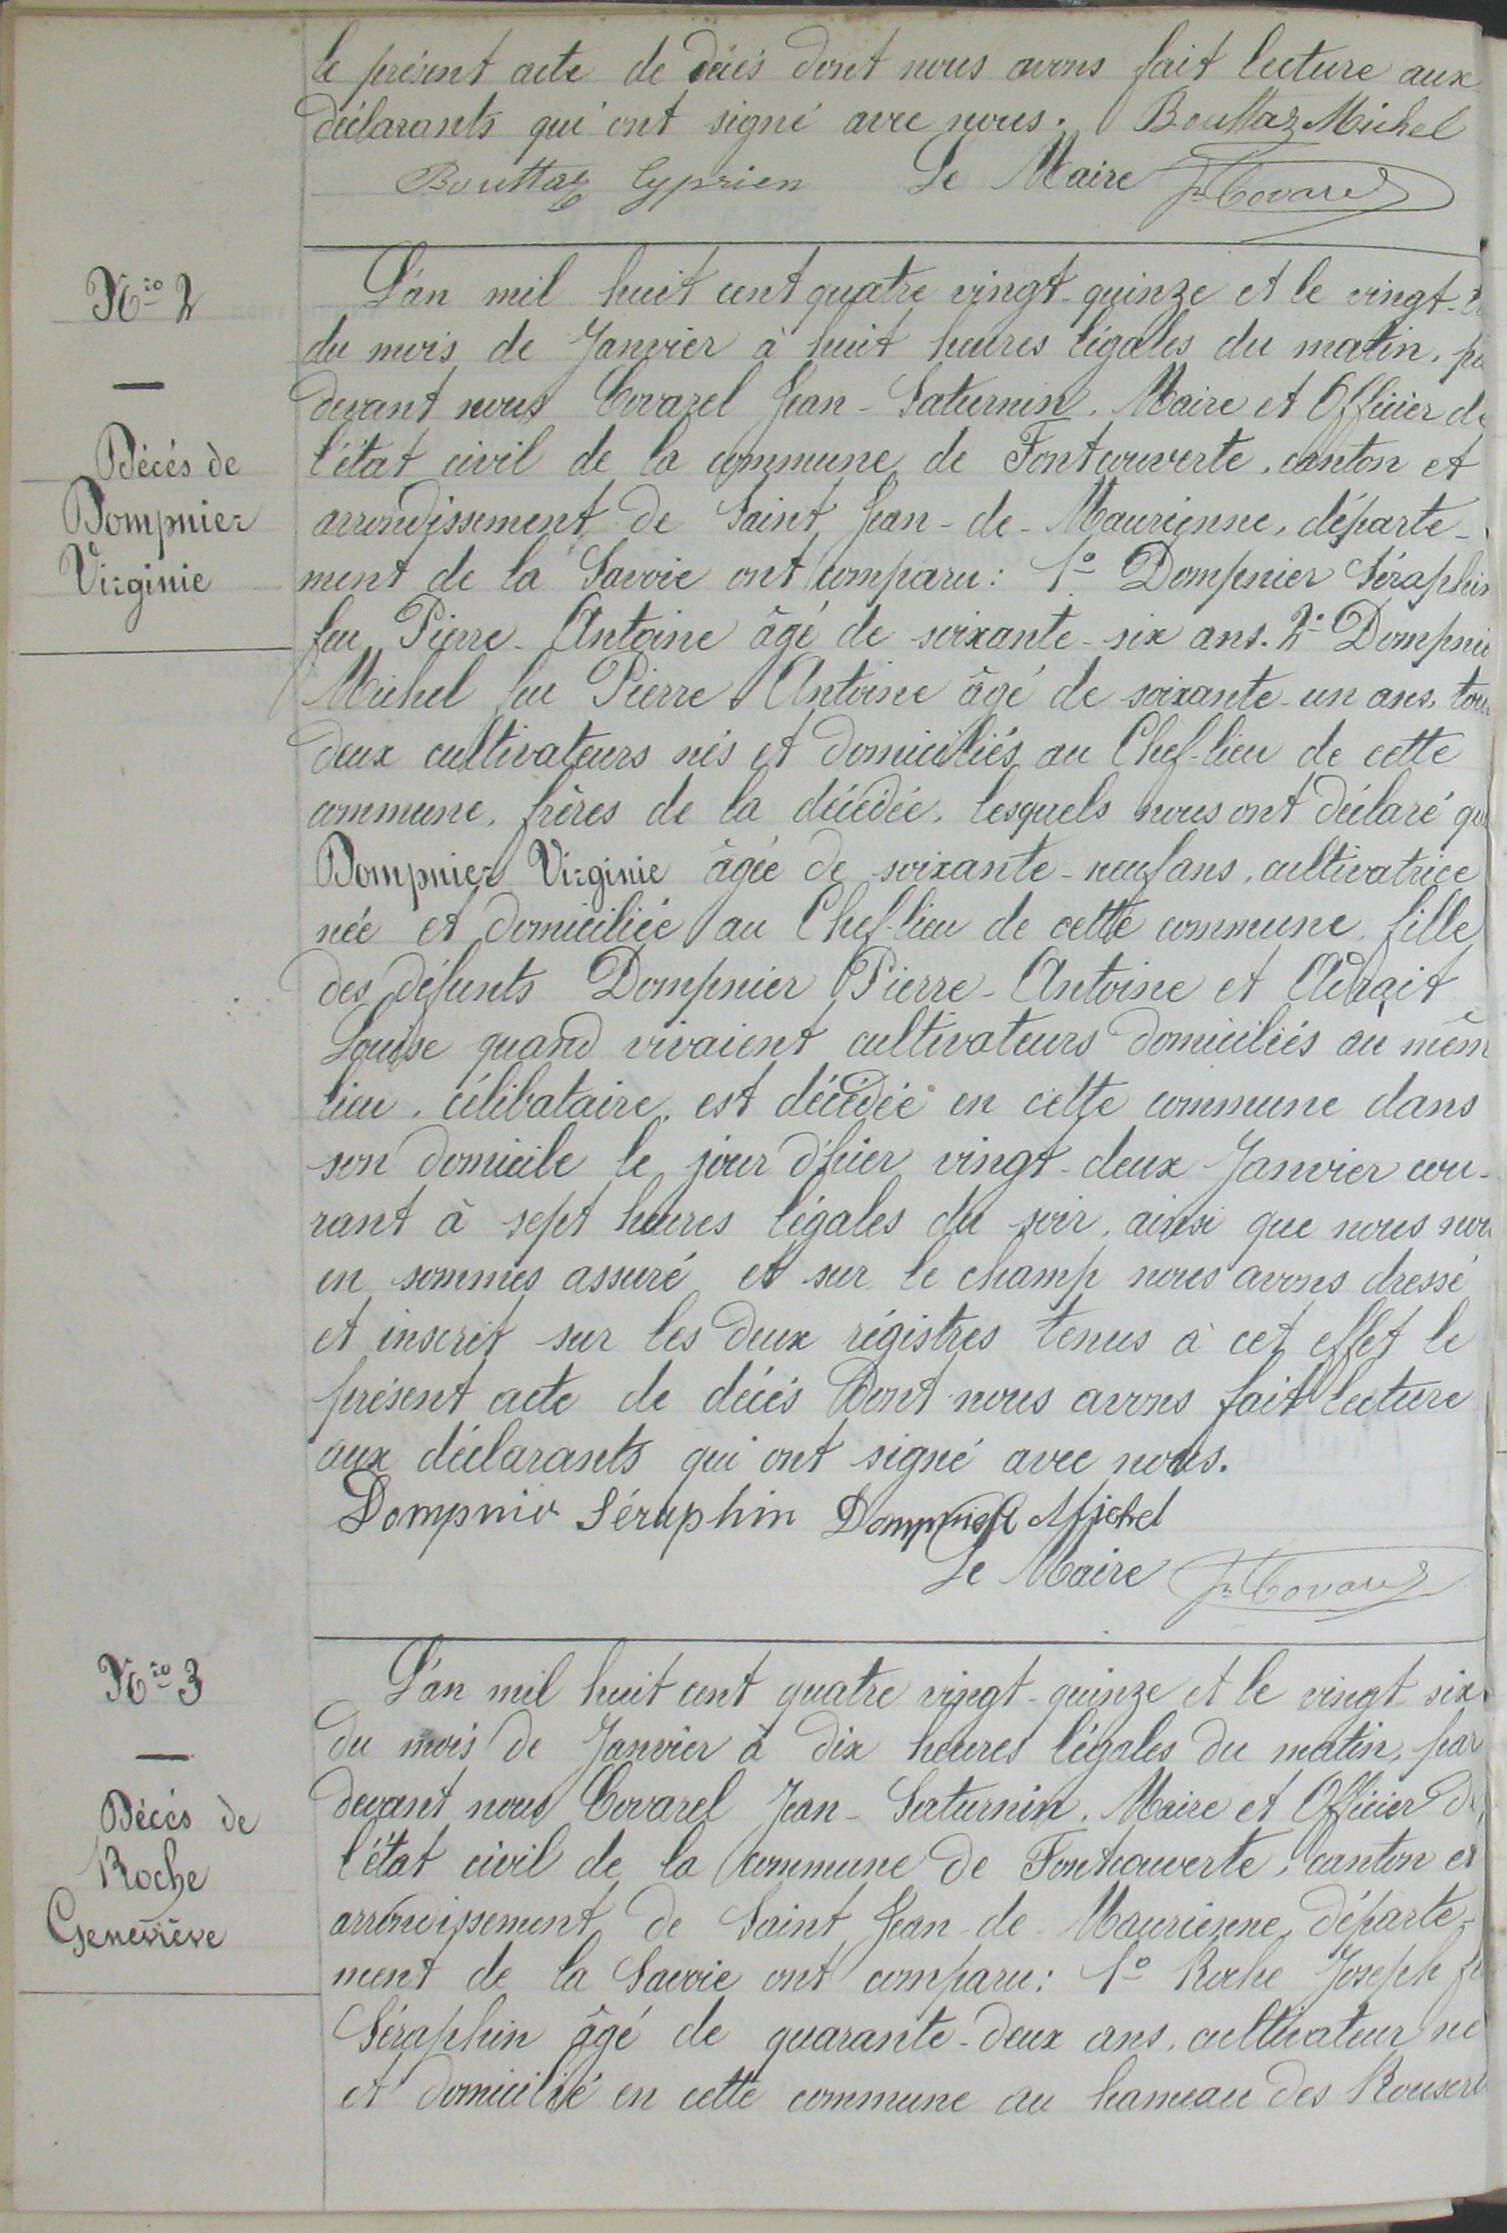 le présent acte de décés dont nous avons fait lecture aux
déclarants qui ont signé avec nous. Bouttaz Michel
Bouttaz Cyprien Le Maire Jn Covarel
Nro 2
Décés de
Dompnier
Virginie
L'an mil huit cent quatre vingt-quinze et le vingt-
du mois de Janvier à huit heures légales du matin, pa
devant nous Covarel Jean-Saturnin, Maire et Officier de
l'état civil de la commune de Fontcouverte, canton et
arrondissement de Saint Jean-de-Maurienne, départe-
ment de la Savoie ont comparu: 1o Dompnier Séraphin
feu Pierre-Antoine âgé de soixante-six ans. 2o Dompnie
Michel feu Pierre Antoine âgé de soixante-un ans, tou
deux cultivateurs nés et domiciliés au Chef-lieu de cette
commune, frères de la décédée, lesquels nous ont déclaré que
Dompnier Virginie âgée de soixante-neuf ans, cultivatrice
née et domiciliée au Chef-lieu de cette commune, fille
des défunts Dompnier Pierre-Antoine et Adrait
Louise quand vivaient cultivateurs domiciliés au mêm
lieu, célibataire, est décédée en cette commune dans
son domicile le jour d'hier vingt-deux Janvier cou-
rant à sept heures légales du soir, ainsi que nous nou
en sommes assuré et sur le champ nous avons dressé
et inscrit sur les deux régistres tenus à cet effet le
présent acte de décés dont nous avons fait lecture
aux déclarants qui ont signé avec nous.
Dompnier Séraphin Dompnier Michel
Le Maire Jn Covarel
Nro 3
Décés de
Roche
Geneviève
L'an mil huit cent quatre vingt-quinze et le vingt six
du mois de Janvier à dix heures légales du matin, par
devant nous Covarel Jean-Saturnin, Maire et Officier de
l'état civil de la commune de Fontcouverte, canton et
arrondissement de Saint Jean-de-Maurienne, départe-
ment de la Savoie ont comparu: 1o Roche Joseph fe
Séraphin âgé de quarante-deux ans, cultivateur né
et domicilié en cette commune au hameau des